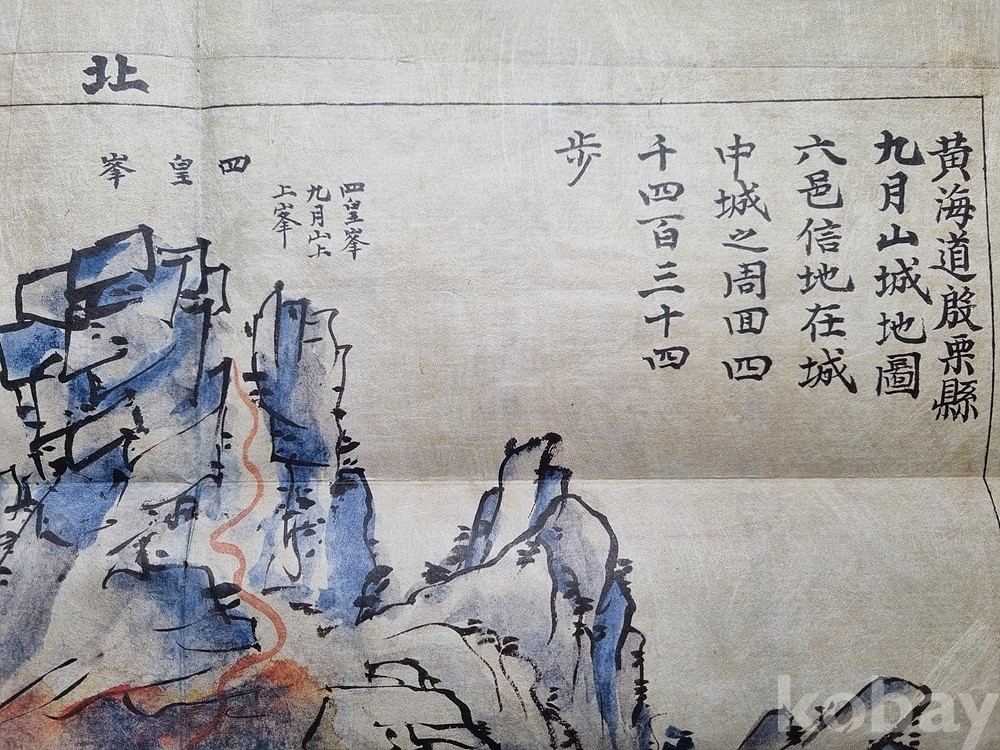 黃海道殷栗縣
九月山城地圖
六邑信地在城
中城之周回四
千四百三十四
步
北
四皇峯
四皇峯
九月山上
上峯
kobay